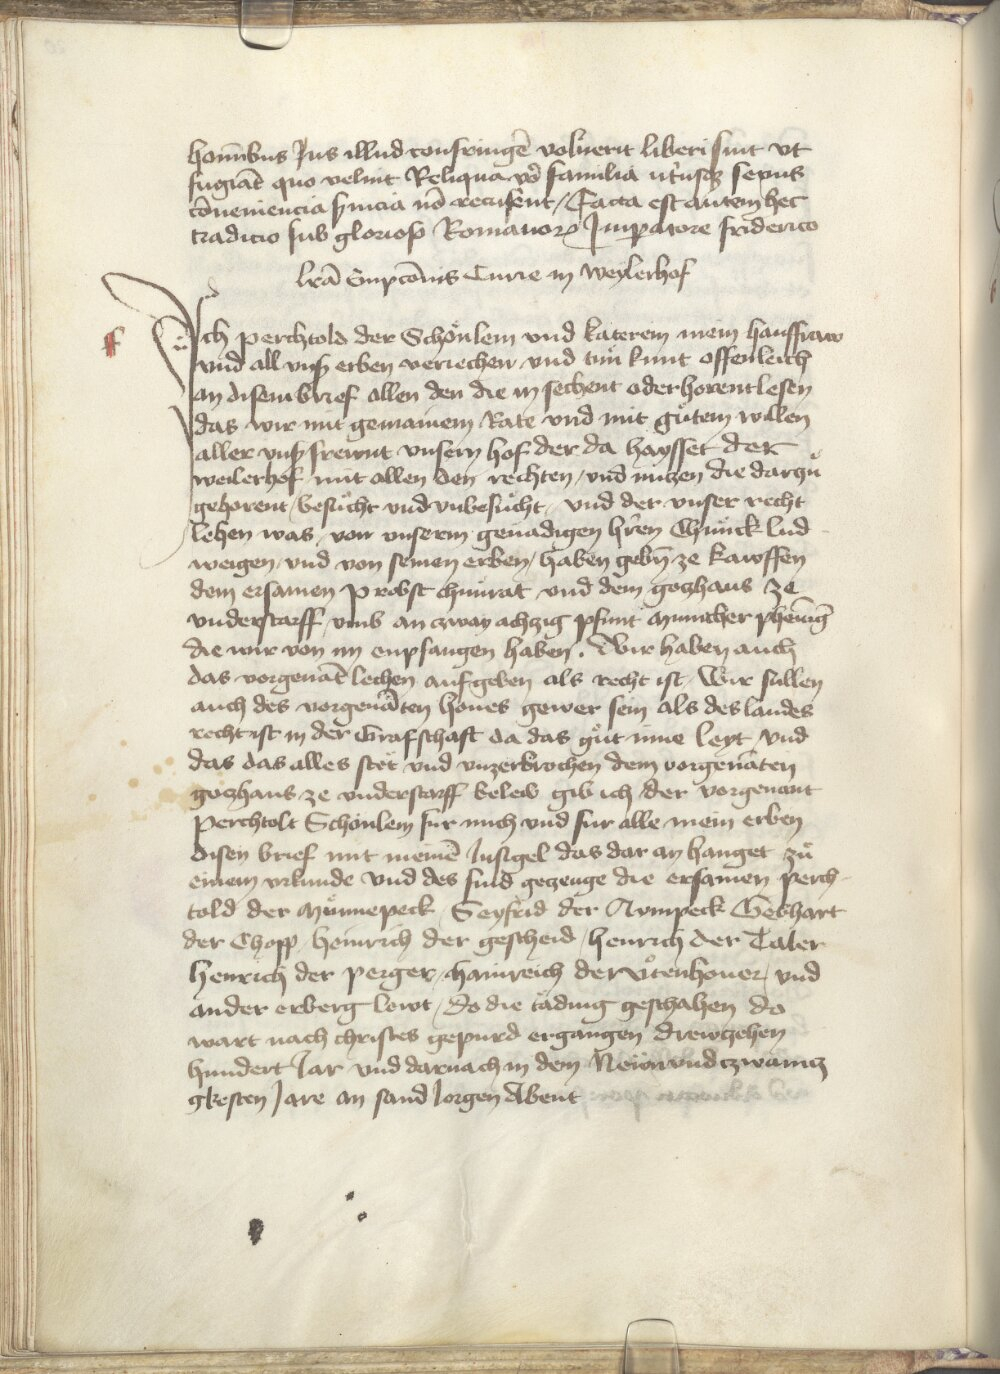 homībus Jus illud confringē voluerit liberi sint vt
fugiāt quo velint Reliqua v̄o familia utͥusqꝫ sexus
cōueniencia s̄uicia nō recusent / Facta est autem hec
tradicio sub glorioso Romanorꝝ Imperatore friderico
lr̄a Emp̄conis Curie in weylerhof
ff Ich perchtold der Schönlein vnd katerein mein hausfraw
vnd all vnß erben veriechen vnd tün kunt offenleich
an disem brief allen den die in sechent oder horentlesen
das wir mit gemainem Rate vnd mit gůtem willen
aller vnß frewnt vnsern hof der da haysset der
weilerhof mit allen den rechten / vnd nutzen die darzů
gehorent / besůcht vnd vnbesůcht / vnd der vnser recht
lehen was / von vnserm genadigen hr̄en Chünck lud
weigen / vnd von seinen erben / haben gebn̄ ze kawffen
dem ersamen probst chünrat vnd dem goczhaus ze
vnderstarff / vmb an czway achzig pfunt Municher phēnīg
die wir von im enpfangen haben . Wir haben auch
das vorgenāt lechen aufgeben als recht ist / Wir sullen
auch des vorgenāten houes gewer sein als des landes
recht ist in der Grafschaft da das gůt inne leyt / vnd
das das alles stet vnd vnzerbrochen dem vorgenāten
goczhaus ze vnderstorff beleib gib ich der vorgenant
perchtolt Schönlein fur mich vnd fur alle mein erben
disen brief mit meinē Insigel das dar an hanget zů
einem vrkunde vnd des sind geczeuge die ersamen perch
told der Münnepeck / Seyfrid der Rumpeck Gebhart
der Chopp / heinrich der gescheid / henrich der Taler
henrich der perger / hainreich der vͦtenhouer / vnd
ander erberg lewt / do die täding geschahen do
wart nach christes gepurd ergangen drewczehen
hundert Jar vnd darnach in dem Newnvndczwaincz
gkesten Jare an sand Jorgen Abent